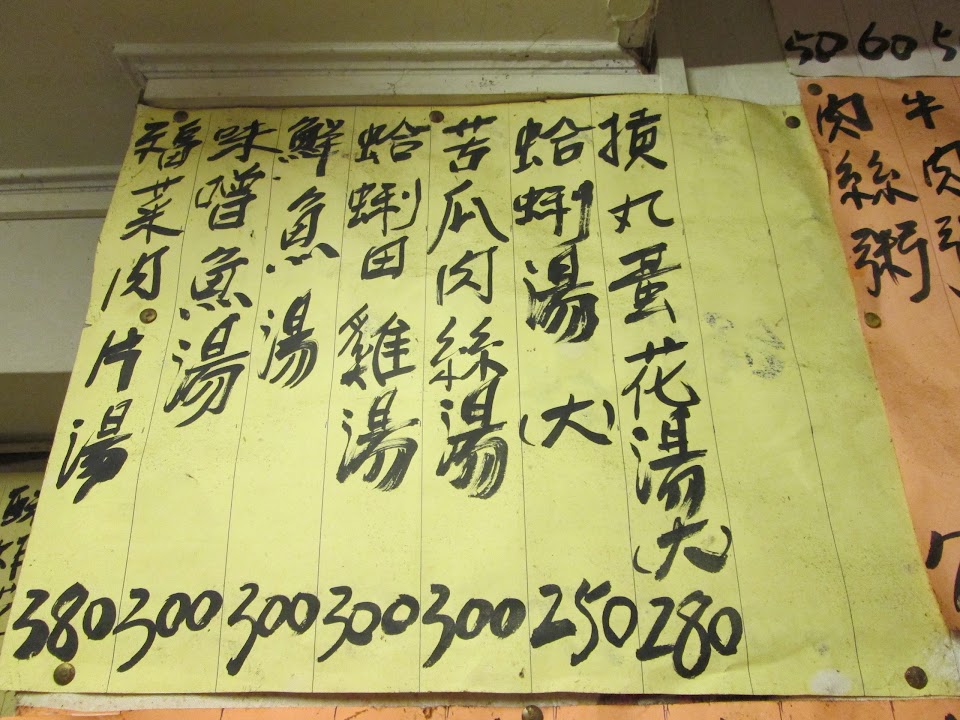 50 60
牛肉
肉絲粥
摃丸蛋花湯(大) 280
蛤蜊湯(大) 250
苦瓜肉絲湯 300
蛤蜊田雞湯 300
鮮魚湯 300
味噌魚湯 300
福菜肉片湯 380